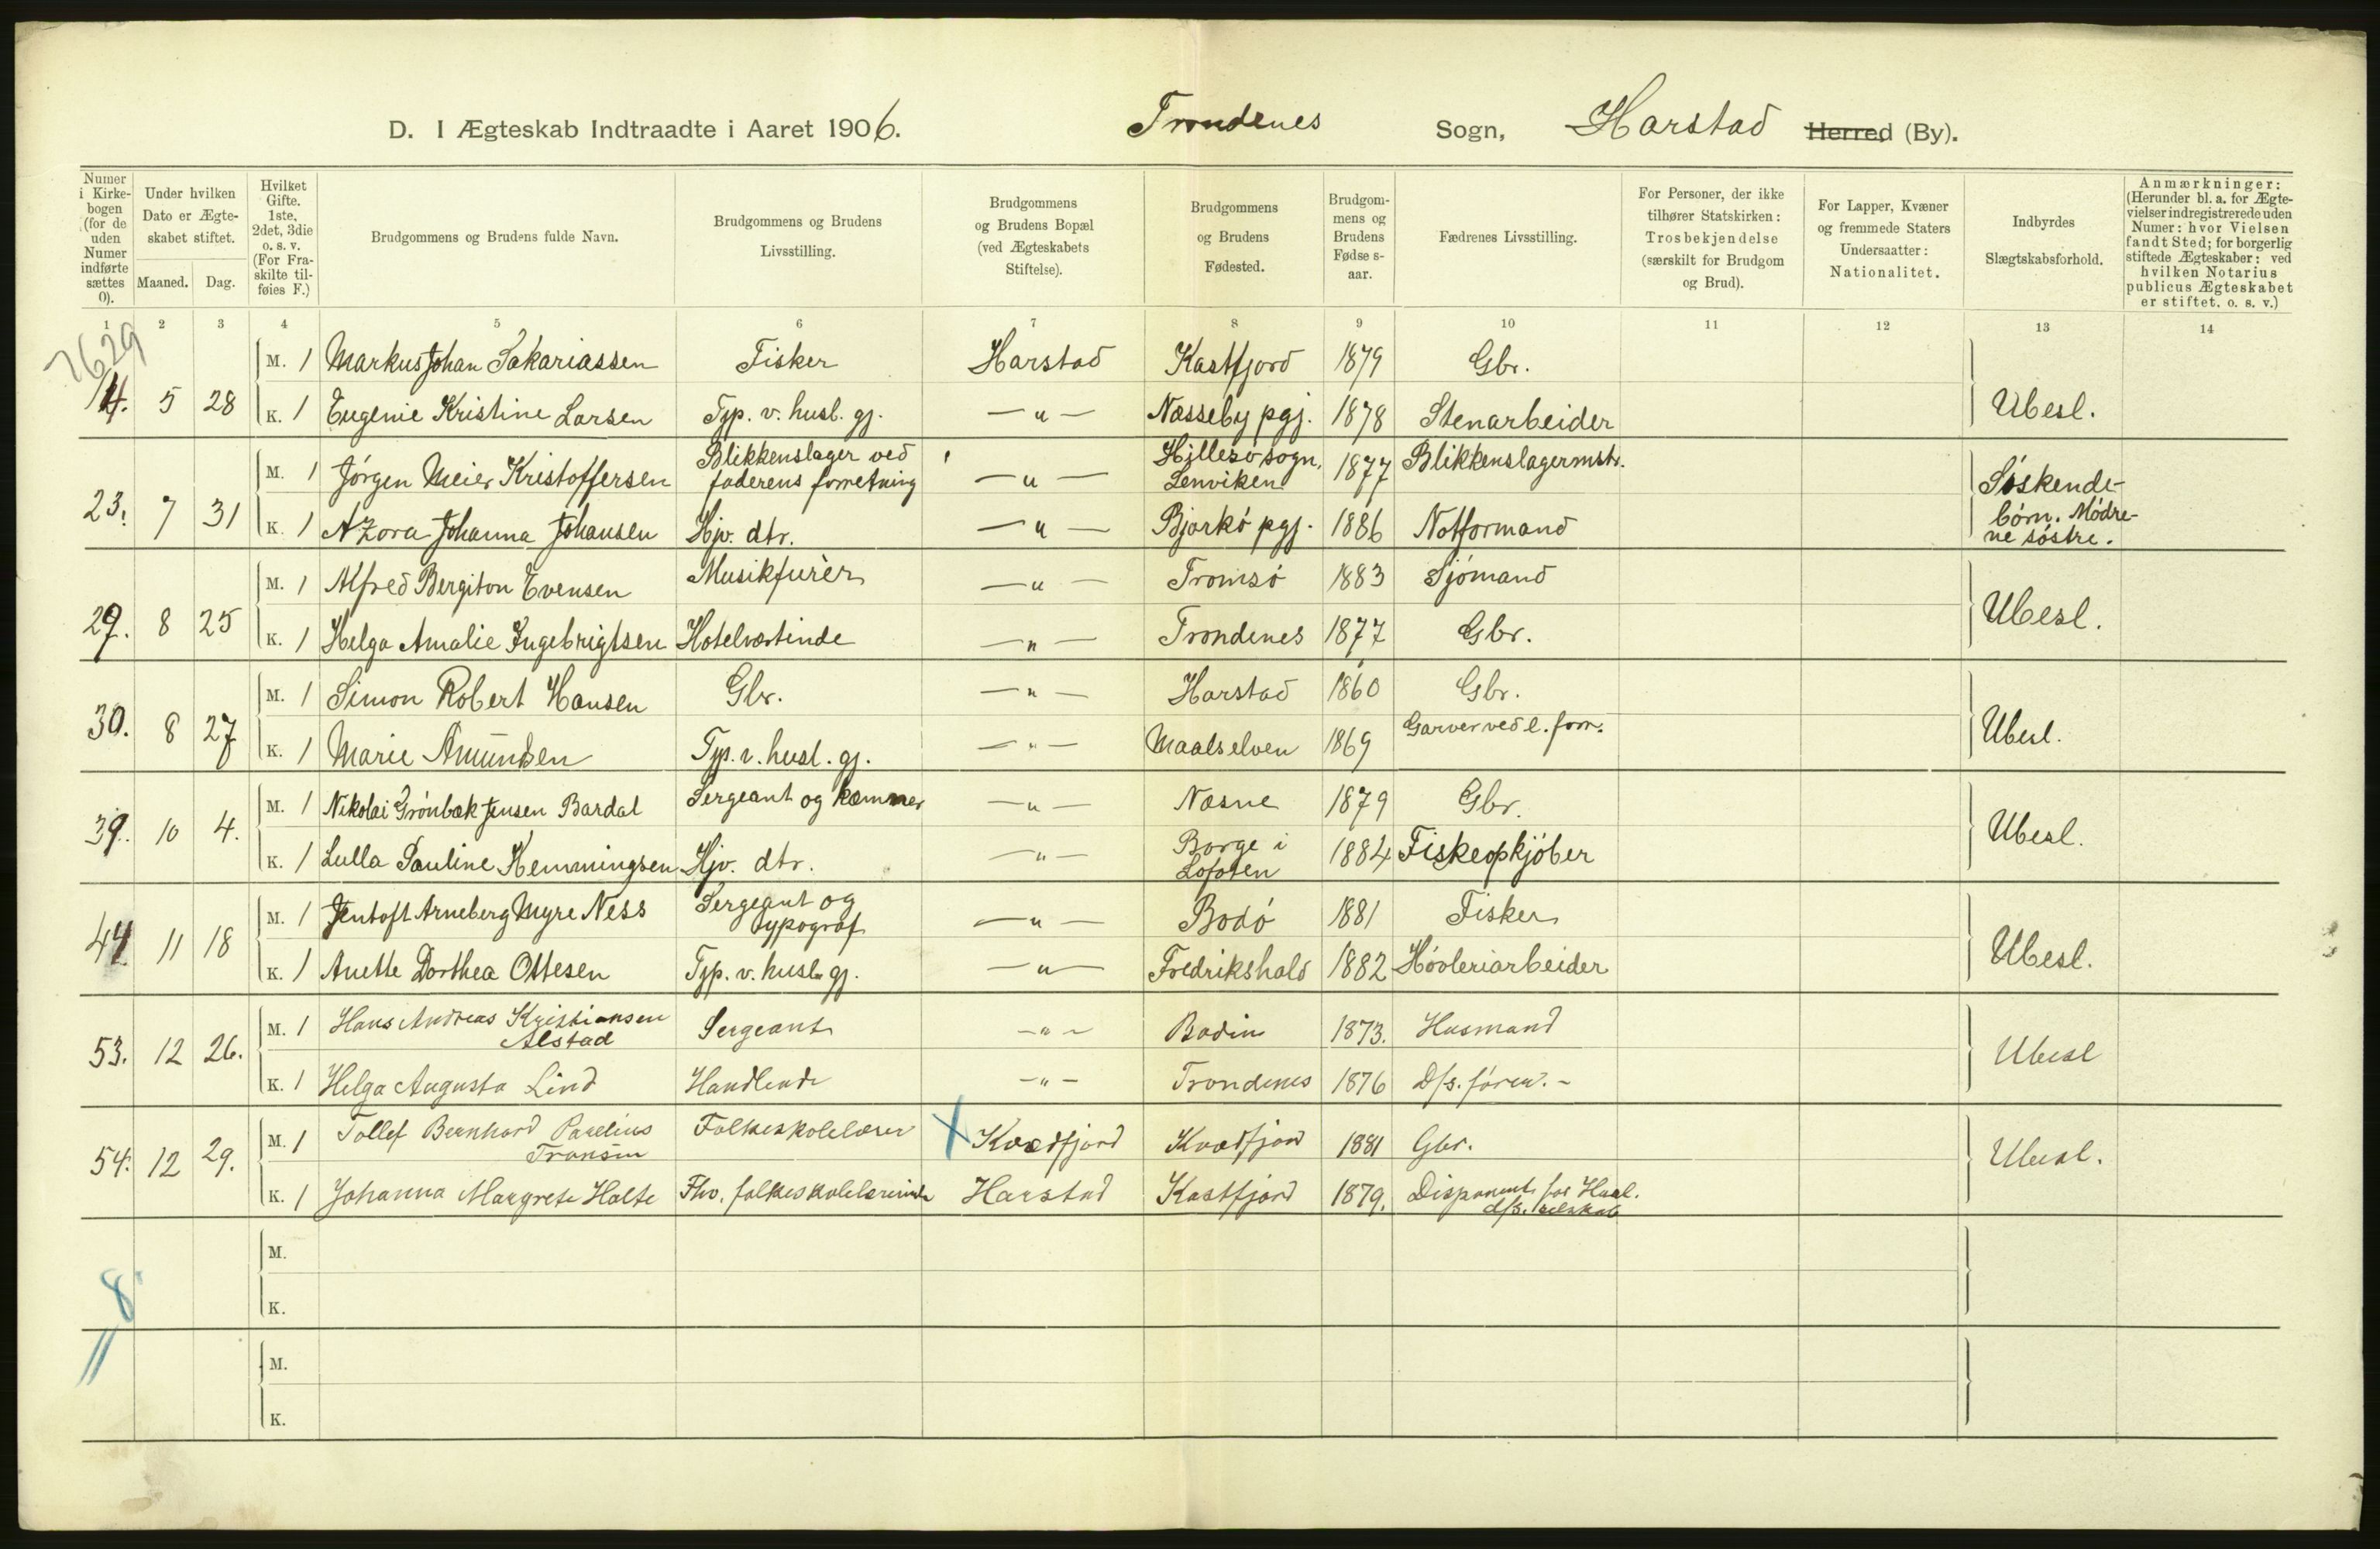 D. I Ægteskab Indtraadte i Aaret 1906. Trondenes Sogn, Harstad Herred (By).
Numer i Kirkebogen (for de uden Numer indførte sættes 0).
Under hvilken Dato er Ægteskabet stiftet.
Maaned. Dag.
Hvilket Gifte. 1ste, 2det, 3die o. s. v. (For Fraskilte tilføies F.)
Brudgommens og Brudens fulde Navn.
Brudgommens og Brudens Livsstilling.
Brudgommens og Brudens Bopæl (ved Ægteskabets Stiftelse).
Brudgommens og Brudens Fødested.
Brudgommens og Brudens Fødse s-aar.
Fædrenes Livsstilling.
For Personer, der ikke tilhører Statskirken: Trosbekjendelse (særskilt for Brudgom og Brud).
For Lapper, Kvæner og fremmede Staters Undersaatter: Nationalitet.
Indbyrdes Slægtskabsforhold.
Anmærkninger: (Herunder bl. a. for Ægtevielser indregistrerede uden Numer: hvor Vielsen fandt Sted; for borgerlig stiftede Ægteskaber: ved hvilken Notarius publicus Ægteskabet er stiftet. o. s. v.)
1 2 3 4 5 6 7 8 9 10 11 12 13 14
7629
M. 1 Markus Johan Sakariassen Fisker Harstad Kastfjord 1879 Gbr.
14. 5 28 K. 1 Eugenie Kristine Larsen Typ. v. husl. gj. — " — Næsseby pgj. 1878 Stenarbeider Ubesl.
M. 1 Jørgen Meier Kristoffersen Blikkenslager ved faderens forretning — " — Hillesø sogn, Lenviken 1877 Blikkenslagermstr.
23. 7 31 K. 1 Azora Johanna Johansen Hjv. dtr. — " — Bjarkø pgj. 1886 Notformand Søskendebørn. Mødrene søstre.
M. 1 Alfred Bergiton Evensen Musikfurèr — " — Tromsø 1883 Sjømand
29. 8 25 K. 1 Helga Amalie Ingebrigtsen Hotelvertinde — " — Trondenes 1877 Gbr. Ubesl.
M. 1 Simon Robert Hansen Gbr. — " — Harstad 1860 Gbr.
30. 8 27 K. 1 Marie Amundsen Typ. v. husl. gj. — " — Maalselven 1869 Garver ved e. forr. Ubesl.
M. 1 Nikolai Grønbæk Jensen Bardal Sergeant og kæmner — " — Næsne 1879 Gbr.
39. 10 4. K. 1 Lulla Pauline Hemmingsen Hjv. dtr. — " — Borge i Lofoten 1884 Fiskeopkjøber Ubesl.
M. 1 Jentoft Arneberg Myre Ness Sergeant og typograf — " — Bodø 1881 Fisker
44. 11 18 K. 1 Anette Dorthea Ottesen Typ. v. husl. gj. — " — Fredrikshald 1882 Høvleriarbeider Ubesl.
M. 1 Hans Andreas Kristiansen Alstad Sergeant — " — Bodin 1873. Husmand
53. 12 26. K. 1 Helga Augusta Lind Handlende — " — Trondenes 1876 D/s. fører. – Ubesl
M. 1 Tollef Bernhard Parelius Fransen Folkeskolelærer Kvædfjord Kvædfjord 1881 Gbr.
54. 12 29. K. 1 Johanna Margrete Holte Fhv. folkeskolelærerinde Harstad Kastfjord 1879. Disponent for Haal. d/s. selskab Ubesl.
M.
K.
8
M.
K.